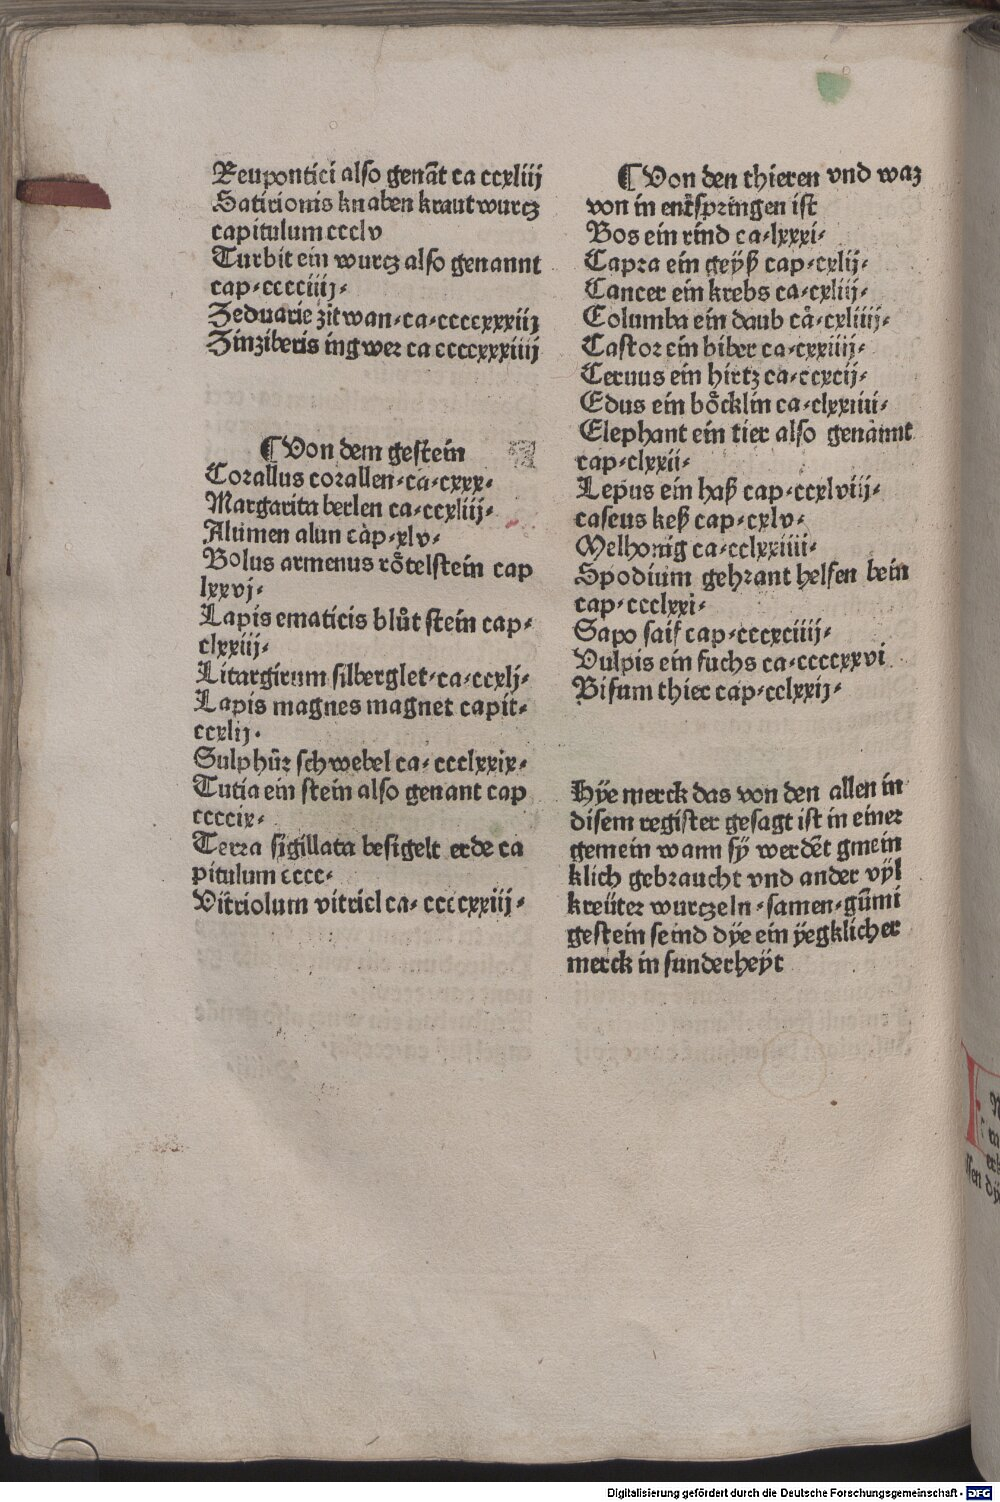 Reupontici also genāt ca ccxliij
Satirionis knaben kraut wurcz
capitulum ccclv
Turbit ein wurcz also genannt
cap·cccciiij·
Zeduarie zitwan·ca·ccccxxxiij
Zinziberis ingwer ca ccccxxxiiij
¶ Von dem gestein
Corallus corallen·ca·cxxx·
Margarita berlen ca·ccxliij·
Alumen alun cap·xlv·
Bolus armenus roͤtelstein cap
lxxvj·
Lapis ematicis bluͦt stein cap·
clxxiij·
Litargirum silberglet·ca·ccxlj·
Lapis magnes magnet capit·
ccxlij·
Sulphūr schwebel ca·ccclxxix·
Tutia ein stein also genant cap
ccccix·
Terra sigillata besigelt erde ca
pitulum cccc·
Vitriolum vitriel ca·ccccxxiij·
¶ Von den thieren vnd waz
von in entspringen ist
Bos ein rind ca·lxxxi·
Capra ein geÿß cap·cxlij·
Cancer ein krebs ca·cxliij·
Columba ein daub ca·cxliiij·
Castor ein biber ca·cxxiiij·
Ceruus ein hirtz ca·ccxcij·
Edus ein boͤcklin ca·clxxiiii·
Elephant ein tier also genannt
cap·clxxii·
Lepus ein haß cap·ccxlviij·
caseus keß cap·cxlv·
Mel honig ca·cclxxiiii·
Spodium gebrant helfen bein
cap·ccclxxi·
Sapo saif cap·cccxciiij·
Vulpis ein fuchs ca·ccccxxvi
Bisum thier cap·cclxxij·
Hÿe merck das von den allen in
disem register gesagt ist in einer
gemein wann sÿ werdēt gmein
klich gebraucht vnd ander vÿl
kreüter wurczeln·samen·gūmi
gestein seind dÿe ein ÿegklicher
merck in sunderheÿt
Digitalisierung gefördert durch die Deutsche Forschungsgemeinschaft - DFG